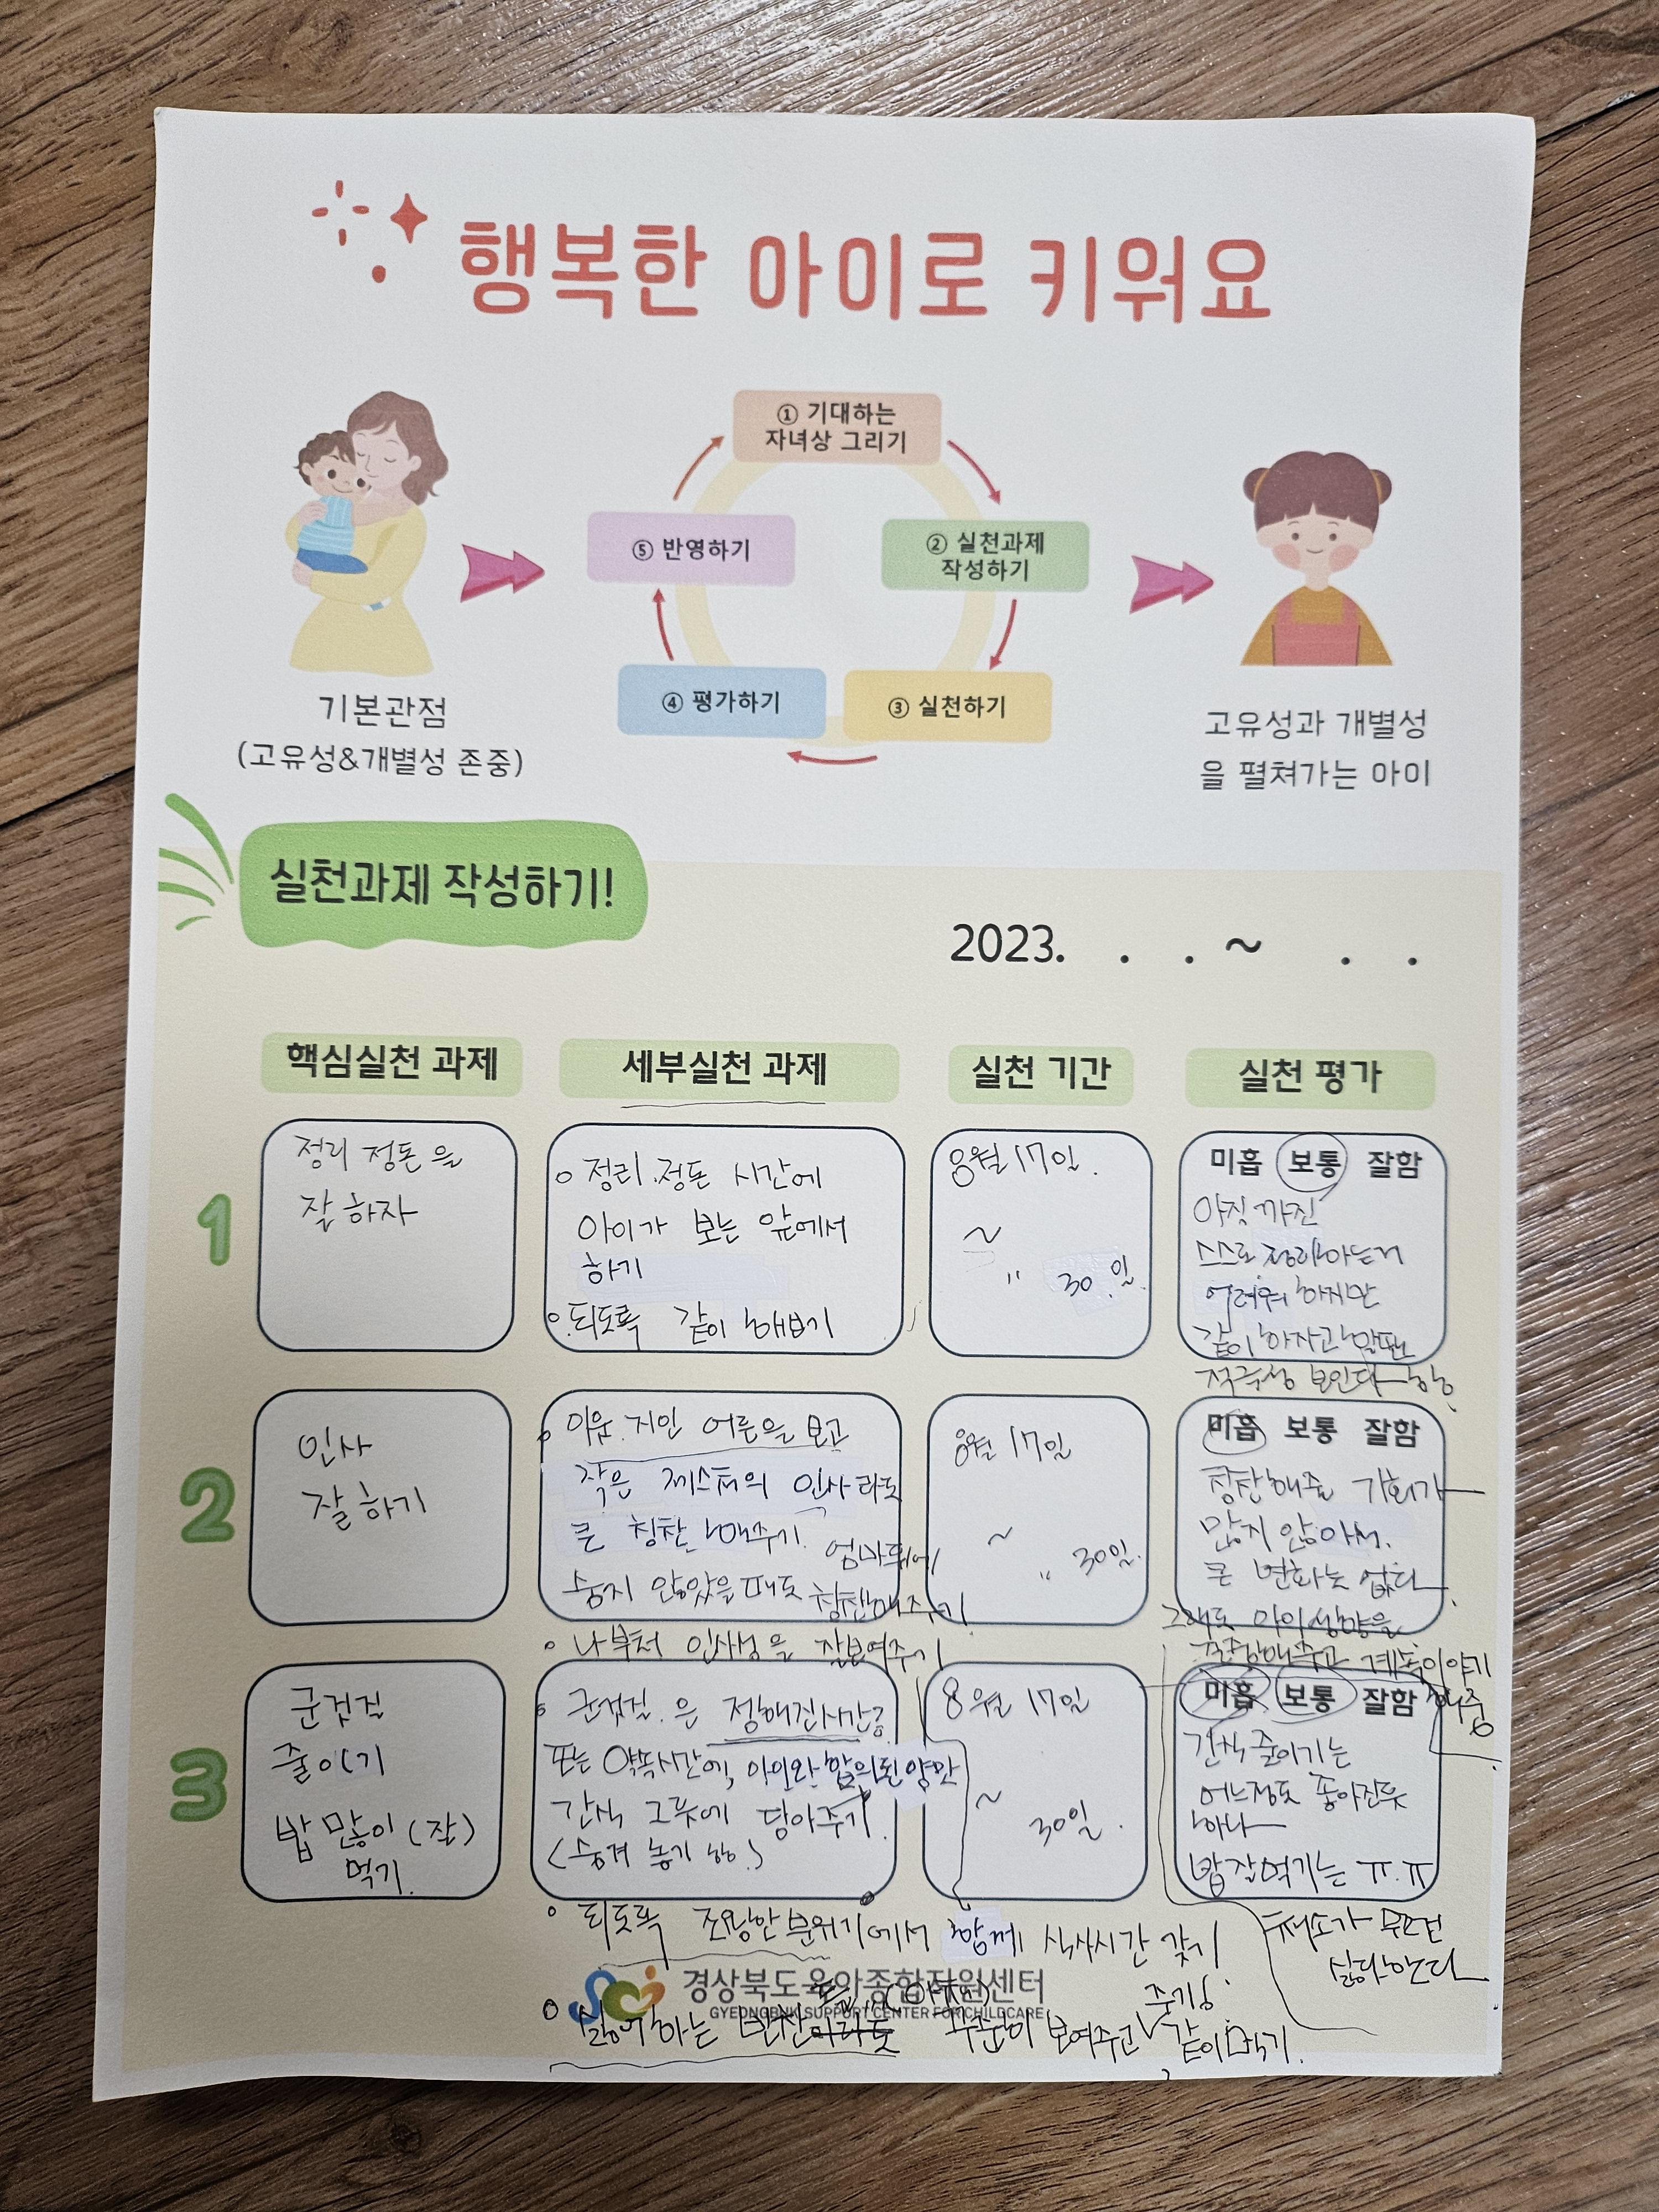 행복한 아이로 키워요
① 기대하는
자녀상 그리기
② 실천과제
작성하기
③ 실천하기
④ 평가하기
⑤ 반영하기
기본관점
(고유성&개별성 존중)
고유성과 개별성
을 펼쳐가는 아이
실천과제 작성하기!
2023. . . ~ . .
핵심실천 과제
세부실천 과제
실천 기간
실천 평가
1
정리 정돈을
잘하자
o 정리.정돈 시간에
아이가 보는 앞에서
하기
o.되도록 같이 해보기
8월 17일.
~
" 30일.
미흡 보통 잘함
아직까진
스스로 정리하는게
어려워 하지만
같이하자고 말하면
적극성 보인다
2
인사
잘하기
o 이웃.지인 어른을 보고
작은 제스처의 인사라도
큰 칭찬 해주기.
엄마뒤에
숨지 않았을때도 칭찬해주기!
o 나부터 인사성을 잘보여주기!
8월 17일
~
" 30일.
미흡 보통 잘함
칭찬해줄 기회가
많지 않아서.
큰 변화는 없다.
그래도 아이성향을
존중해주고 계속이야기
해줌
3
군것질
줄이기
밥 많이 (잘)
먹기.
o 군것질.은 정해진시간
또는 약속시간에, 아이와 합의된양만
간식 그릇에 담아주기.
(숨겨 놓기 함.)
o 되도록 조용한분위기에서 함께 식사시간 갖기!
o 싫어하는 반찬 꾸준히 보여주고 같이먹기.
즐기니
8월 17일
~
30일.
미흡 보통 잘함
간식줄이기는
어느정도 좋아진듯
하나
밥잘먹기는 ㅠ.ㅠ
채소가 무조건
싫다한다
경상북도육아종합지원센터
GYEONGBUK SUPPORT CENTER FOR CHILDCARE